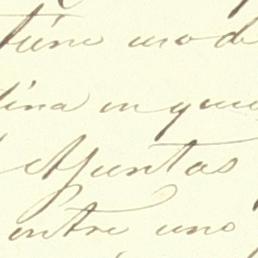 tiene uno de
dina en que
Apuntas
entre uno